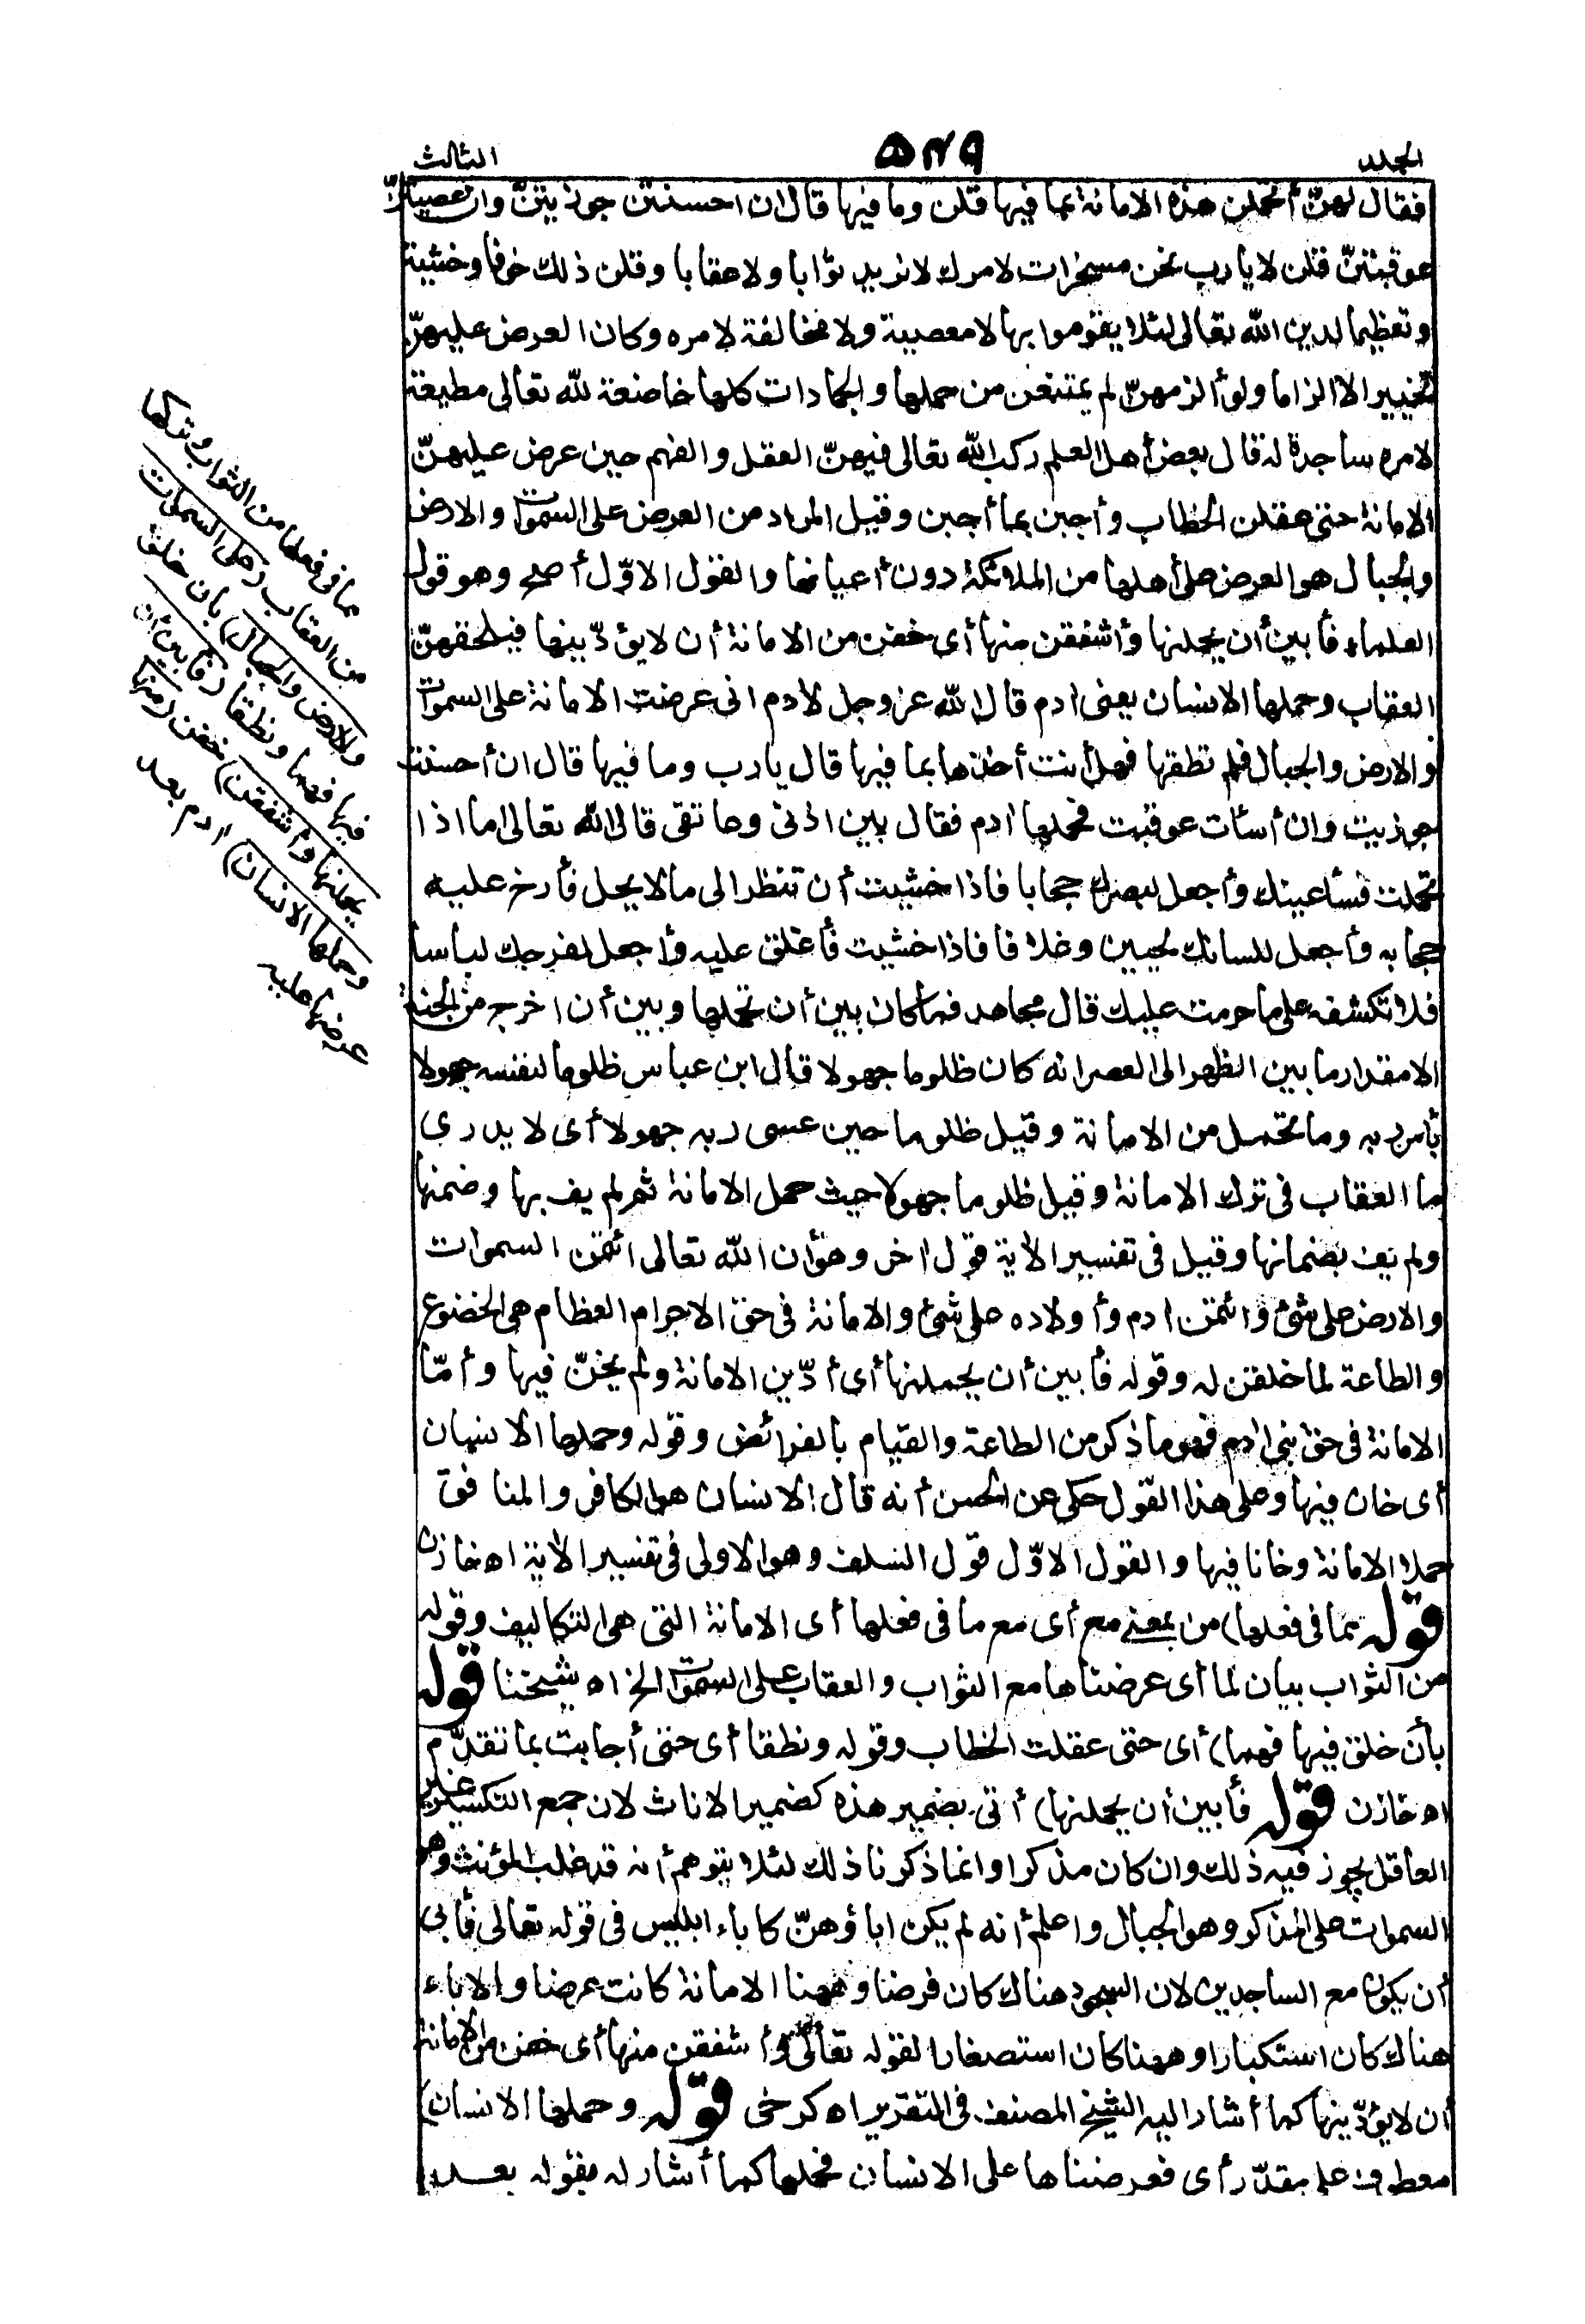 المجلد ٥٤٩ الثالث
فقال لهنّ أتحملن هذه الامانة بما فيها قلن وما فيها قال ان احسنتن جوزيتنّ وان عصيتنّ
عوقبتنّ قلن لا يا رب نحن مسخرات لامرك لا نريد ثوابا ولا عقابا وقلن ذلك خوفا وخشية
وتعظيما لدين الله تعالى لئلا يقوموا بها لا معصية ولا مخالفة لامره وكان العرض عليهنّ
تخييرا لا الزاما ولو ألزمهنّ لم يمتنعن من حملها والجمادات كلها خاضعة لله تعالى مطيعة
لامره ساجدة له قال بعض أهل العلم ركب الله تعالى فيهنّ العقل والفهم حين عرض عليهنّ
الامانة حتى عقلن الخطاب وأجبن بما أجبن وقيل المراد من العرض على السموات والارض
والجبال هو العرض على أهلها من الملائكة دون أعيانها والقول الاوّل أصح وهو قول
العلماء فأبين أن يحملنها وأشفقن منها أى خفن من الامانة أن لا يؤدّينها فيلحقهنّ
العقاب وحملها الانسان يعنى ادم قال الله عز وجل لادم انى عرضت الامانة على السموات
والارض والجبال فلم تطقها فهل أنت أخذها بما فيها قال يا رب وما فيها قال ان أحسنت
جوزيت وان أسأت عوقبت فحملها ادم فقال بين اذنى وعاتقى قال الله تعالى اما اذا
تحملت فسأعينك وأجعل لبصرك حجابا فاذا خشيت أن تنظر الى ما لا يحل فأرخ عليه
حجابه وأجعل للسانك لحيين وغلاقا فاذا خشيت فأغلق عليه وأجعل لفرجك لباسا
فلا تكشفه على ما حرمت عليك قال مجاهد فما كان بين أن تحملها وبين أن اخرج من الجنة
الا مقدار ما بين الظهر الى العصر انه كان ظلوما جهولا قال ابن عباس ظلوما لنفسه جهولا
بأمر ربه وما تحمل من الامانة وقيل ظلوما حين عسى ربه جهولا أى لا يدرى
ما العقاب فى ترك الامانة وقيل ظلوما جهولا حيث حمل الامانة ثم لم يف بها وضمنها
ولم يف بضمانها وقيل فى تفسير الأية قول اخر وهو أن الله تعالى ائتمن السموات
والارض على شئ وائتمن ادم وأولاده على شئ والامانة فى حق الاجرام العظام هى الخضوع
والطاعة لما خلقن له وقوله فأبين أن يحملنها أى أدّين الامانة ولم يخنّ فيها وأمّا
الامانة فى حق بنى ادم فهو ما ذكر من الطاعة والقيام بالفرائض وقوله وحملها الانسان
أى خان فيها وعلى هذا القول حكى عن الحسن أنه قال الانسان هو الكافر والمنافق
حملا الامانة وخانا فيها والقول الاوّل قول السلف وهو الاولى فى تفسير الأية اه خازن
قوله مما فى فعلها) من بمعنى مع أى مع ما فى فعلها أى الامانة التى هى التكاليف وقوله
من الثواب بيان لما أى عرضناها مع الثواب والعقاب على السموات الخ اه شيخنا قوله
بأن خلق فيها فهما) أى حتى عقلت الخطاب وقوله ونطقا أى حتى أجابت بما تقدّم
اه خازن قوله فأبين أن يحملنها) أتى بضمير هذه كضمير الاناث لان جمع التكسير غير
العاقل يجوز فيه ذلك وان كان مذكرا وانما ذكرنا ذلك لئلا يتوهم أنه قد غلب المؤنث وهو
السموات على المذكر وهو الجبال واعلم أنه لم يكن اباؤهنّ كاباء ابليس فى قوله تعالى فأبى
أن يكون مع الساجدين لان السجود هناك كان فرضا وههنا الامانة كانت عرضا والاباء
هناك كان استكبارا وههنا كان استصغارا لقوله تعالى وأشفقن منها أى خفن من الامانة
أن لا يؤدّينها كما أشار اليه الشيخ المصنف فى التقرير اه كرخى قوله وحملها الانسان)
معطوف على مقدّر أى فعرضناها على الانسان فحملها كما أشار له بقوله بعد
مما فى فعلها من الثواب وتركها
من العقاب (على السموات
والارض والجبال) بان خلق
فيها فهما ونطقا (فأبين أن
يحملنها وأشفقن) خفن (منها
وحملها الانسان) ادم بعد
عرضها عليه